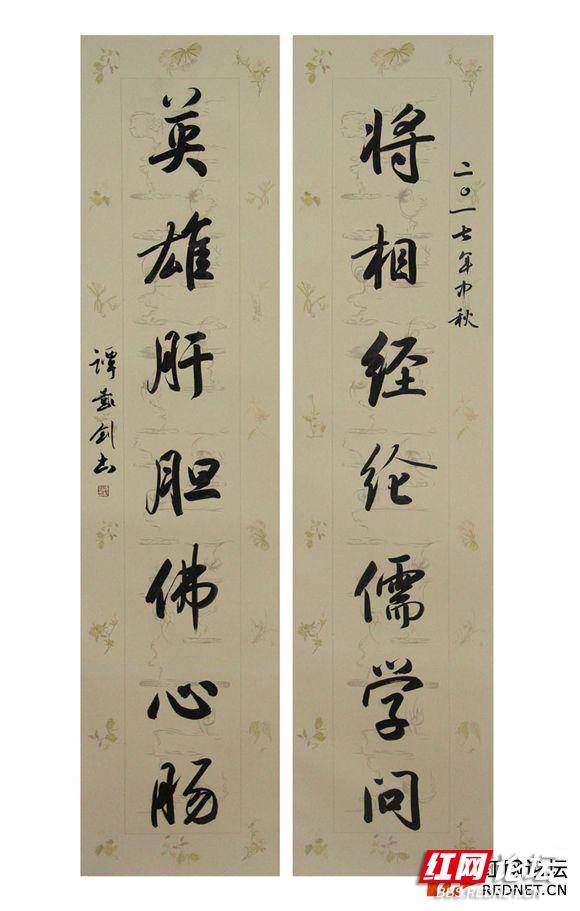 二〇一七年中秋
将相经纶儒学问
英雄肝胆佛心肠
谭剑书
红网论坛
BBS.REDNET.CN
论坛
REDNET.CN